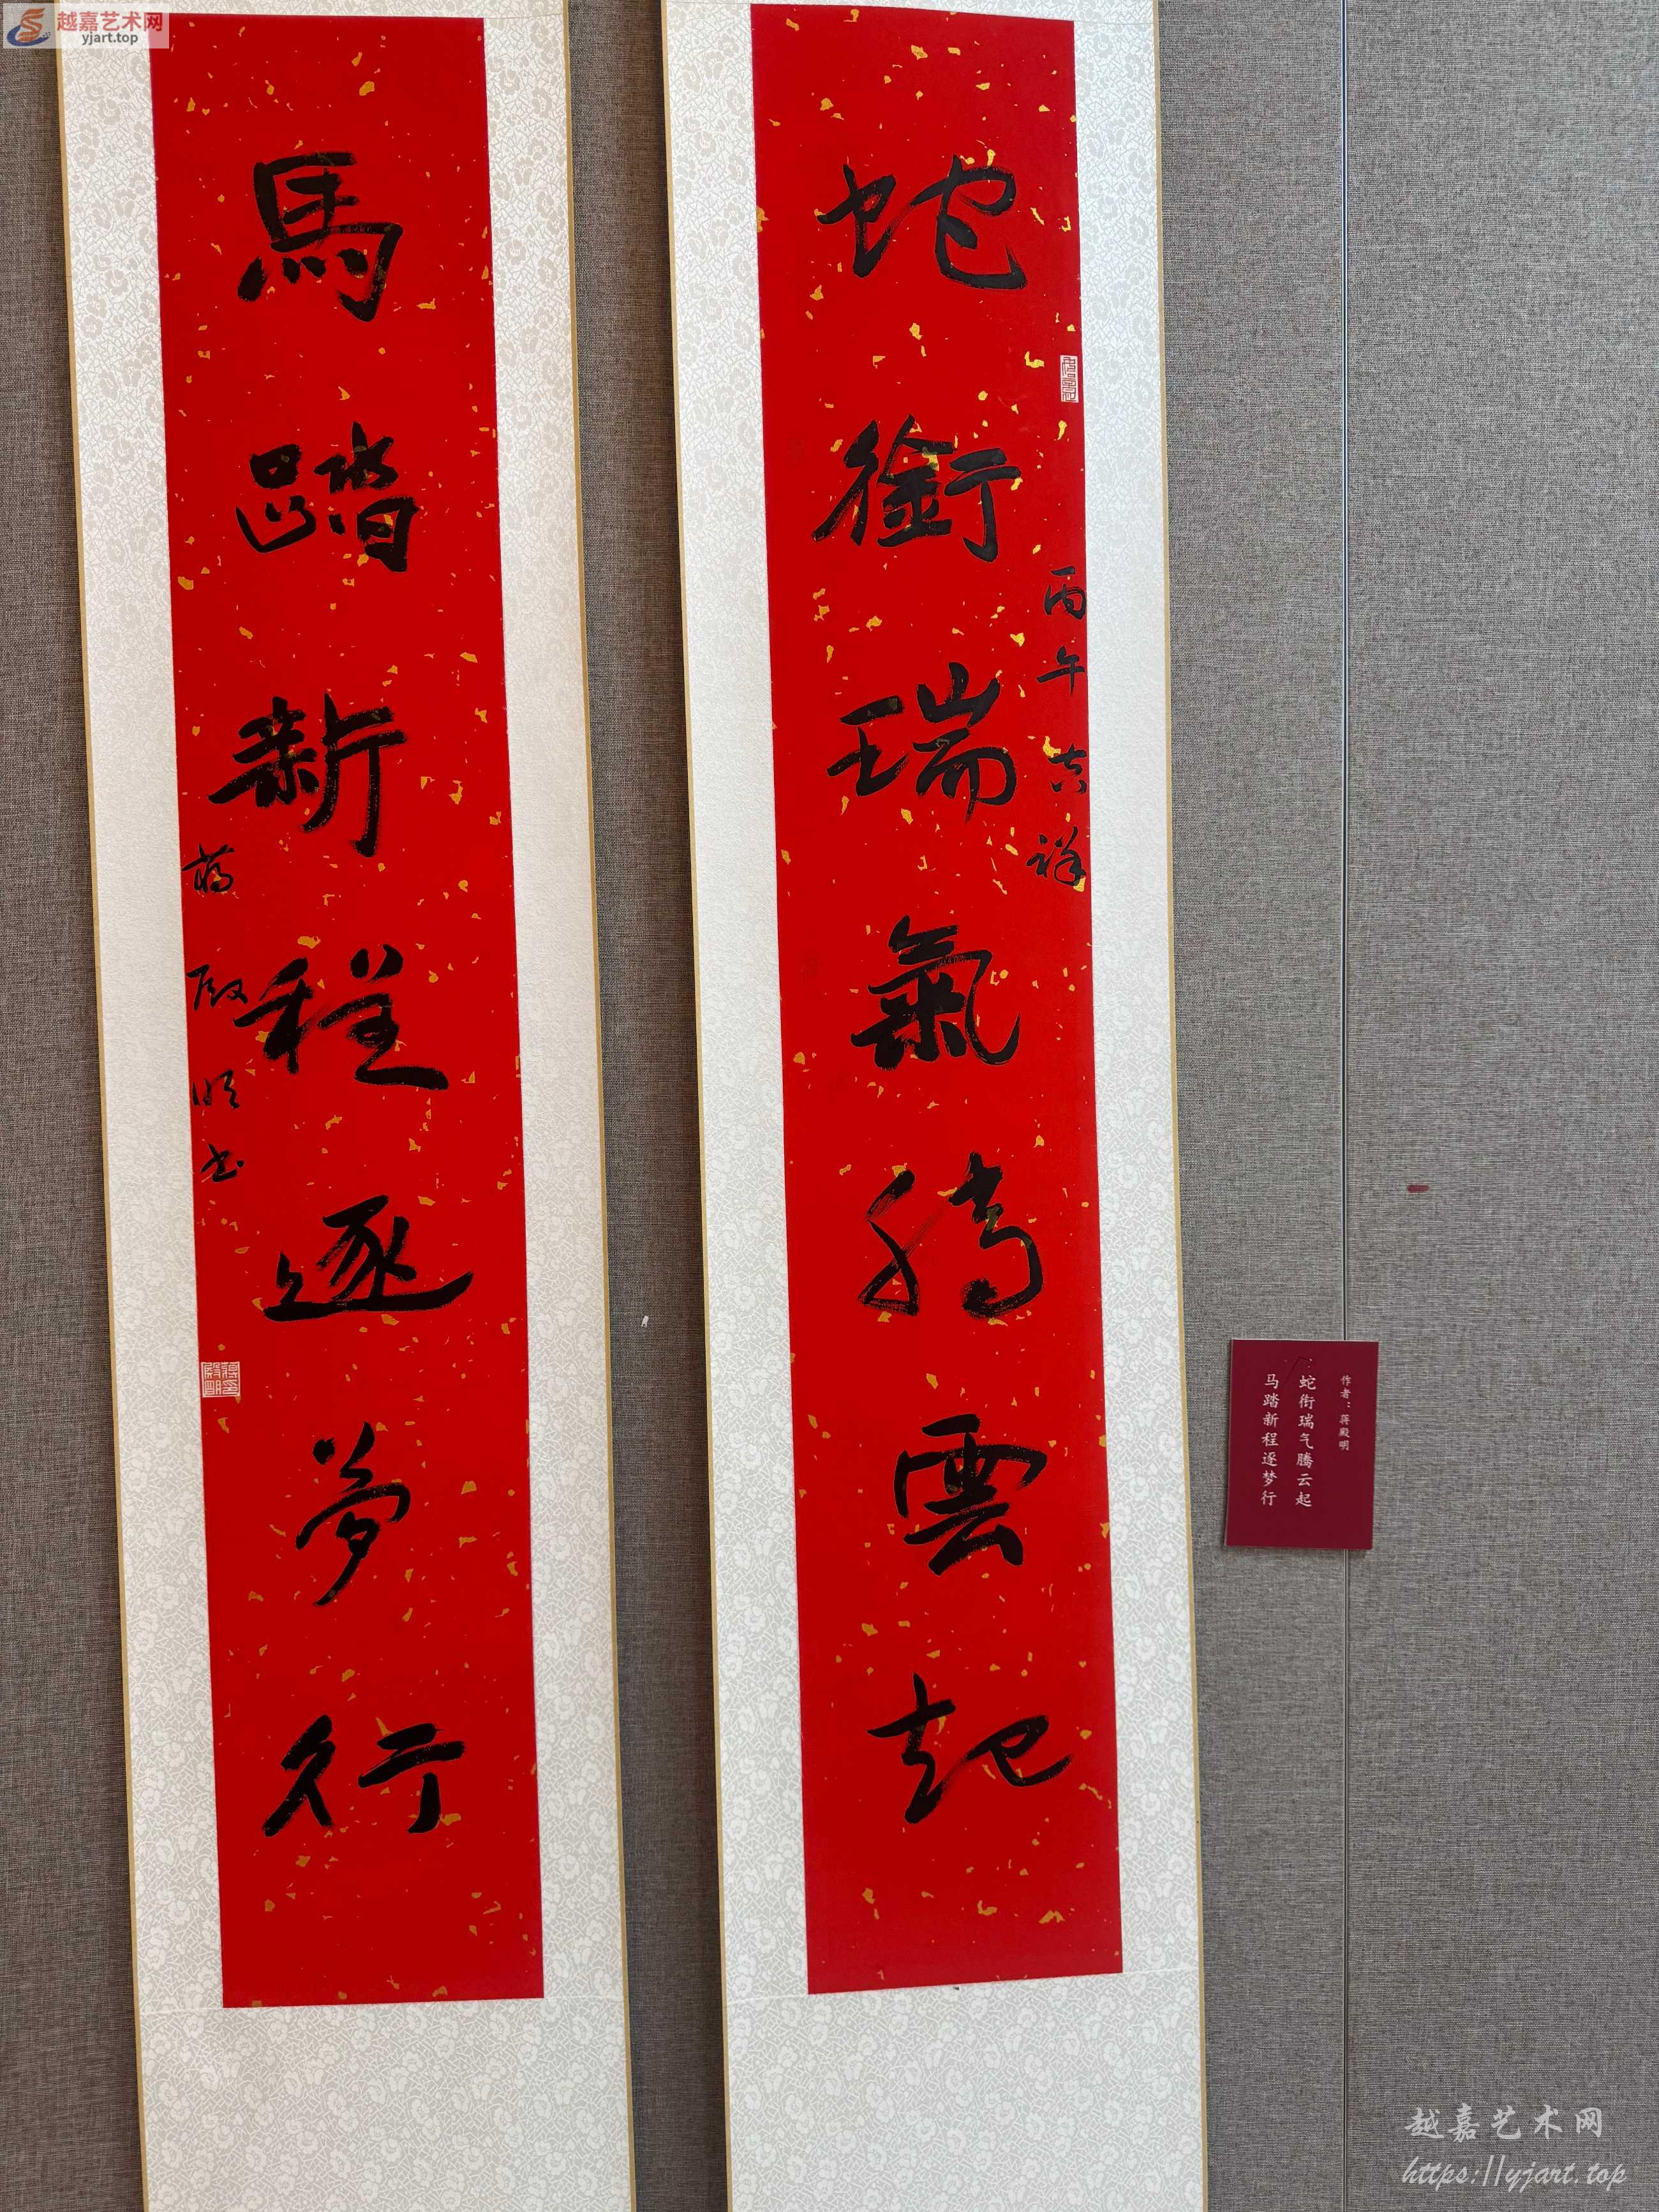 越嘉艺术网
yjart.top
蛇銜瑞氣騰雲起
丙午吉祥
馬踏新程逐夢行
蒋殿明书
作者：蒋殿明
蛇衔瑞气腾云起
马踏新程逐梦行
越嘉艺术网
https://yjart.top